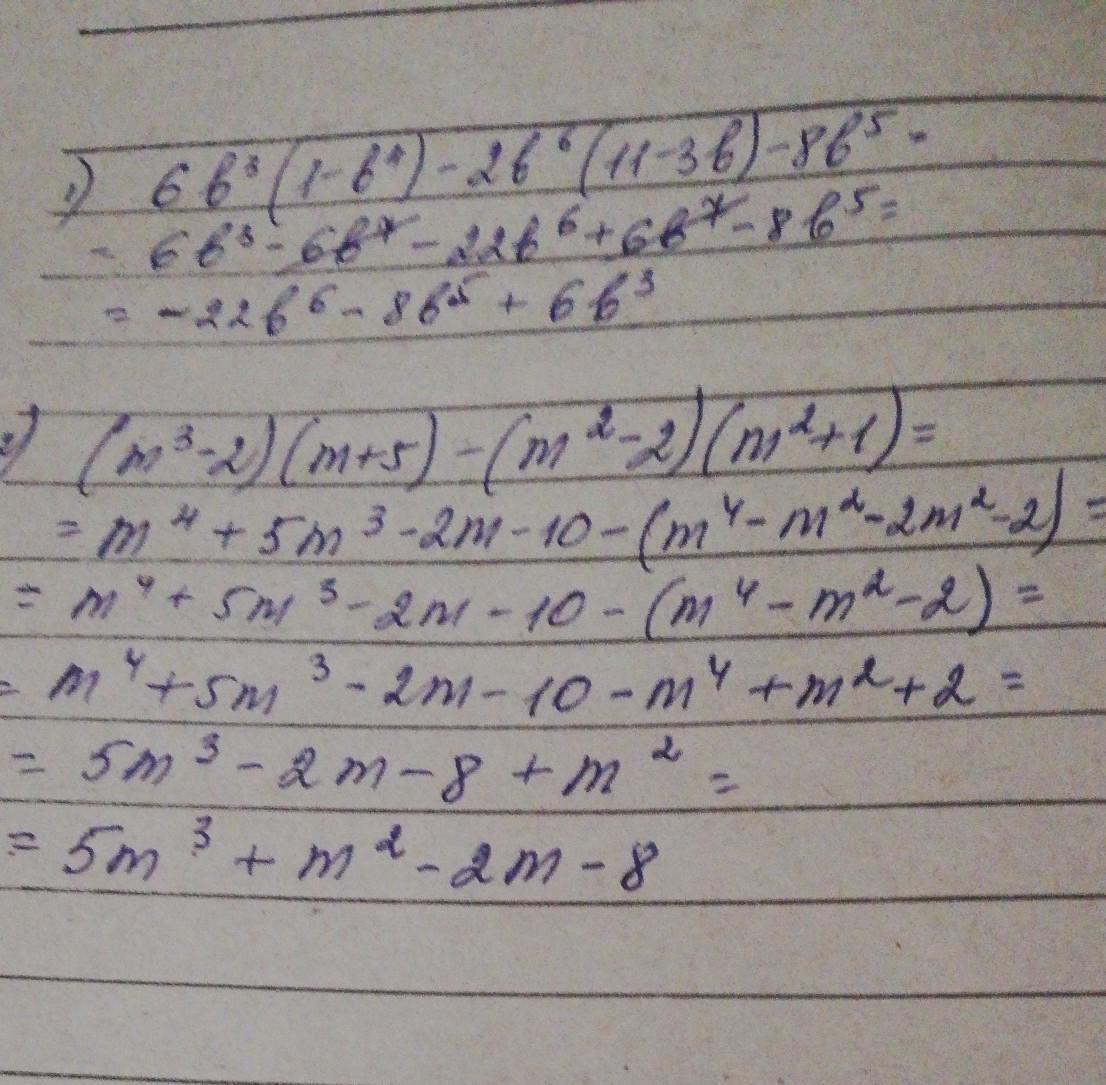 1) 6b³(1-b⁴)-2b⁶(11-3b)-8b⁵=
= 6b³-6b⁷-22b⁶+6b⁷-8b⁵=
= -22b⁶-8b⁵+6b³
2) (m³-2)(m+5)-(m²-2)(m²+1)=
= m⁴+5m³-2m-10-(m⁴-m²-2m²-2)=
= m⁴+5m³-2m-10-(m⁴-m²-2)=
= m⁴+5m³-2m-10-m⁴+m²+2=
= 5m³-2m-8+m²=
= 5m³+m²-2m-8